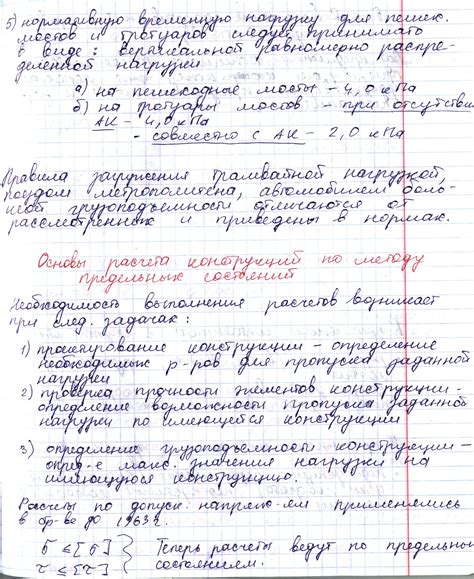 5) нормативную временную нагрузку для пешех.
мостов и тротуаров следует принимать
в виде: вертикальной равномерно распре-
деленной нагрузки
а) на пешеходные мосты – 4,0 кПа
б) на тротуары мостов – при отсутствии
АК – 4,0 кПа
– совместно с АК – 2,0 кПа
Правила загружения трамвайной нагрузкой,
поездом метрополитена, автомобилем боль-
шой грузоподъемности отличаются от
рассмотренных и приведены в нормах.
Основы расчета конструкций по методу
предельных состояний
Необходимость выполнения расчетов возникает
при след. задачах:
1) проектирование конструкции – определение
необходимых р-ров для пропуска заданной
нагрузки
2) проверка прочности элементов конструкции –
определение возможности пропуска заданной
нагрузки по имеющейся конструкции
3) определение грузоподъемности конструкции –
опред-е макс. значения нагрузки на
имеющуюся конструкцию.
Расчеты по допуск. напряж-ям применялись
в стр-ве до 1963 г.
σ ≤ [σ] } Теперь расчеты ведут по предельном
τ ≤ [τ] } состояниям.